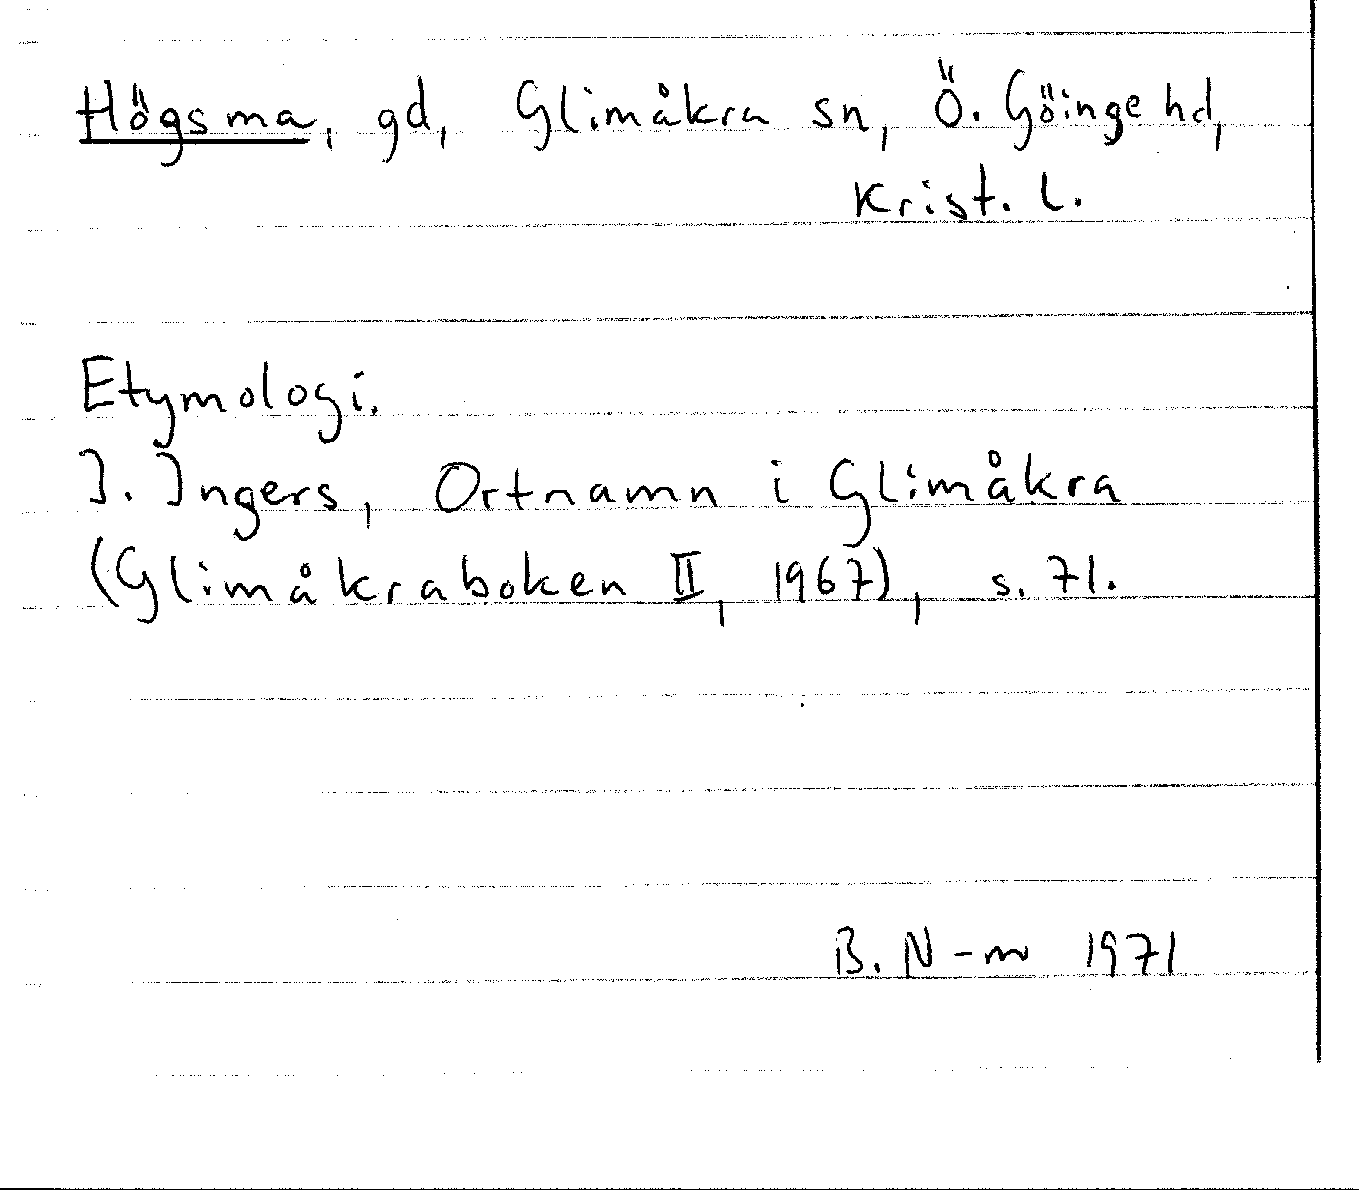 Högsma, gd, Glimåkra sn, Ö. Göinge hd,
Krist. l.
Etymologi.
I. Ingers, Ortnamn i Glimåkra
(Glimåkraboken II, 1967), s. 71.
B. N-m 1971